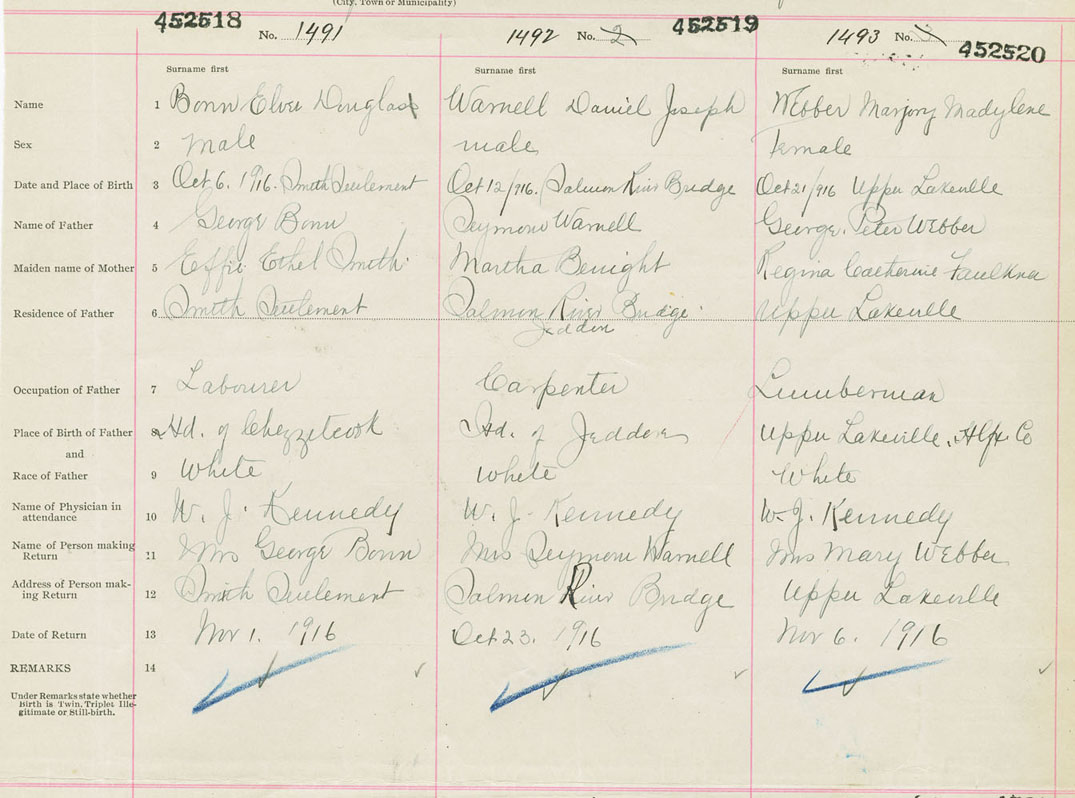 (City, Town or Municipality)
452518 No. 1491 1492 No. 2 452519 1493 No. 3 452520
Surname first Surname first Surname first
Name 1 Bonn Elver Douglas Warnell Daniel Joseph Webber Marjory Madylene
Sex 2 Male male Female
Date and Place of Birth 3 Oct. 6. 1916. Smith Settlement Oct 12/916. Salmon River Bridge Oct 21/916 Upper Lakeville
Name of Father 4 George Bonn Seymour Warnell George. Peter Webber
Maiden name of Mother 5 Effie Ethel Smith Martha Benight Regina Catherine Faulkner
Residence of Father 6 Smith Settlement Salmon River Bridge Upper Lakeville
Jeddore
Occupation of Father 7 Labourer Carpenter Lumberman
Place of Birth of Father 8 Hd. of Chezzetcook Hd. of Jeddore Upper Lakeville, Hfx Co
and
Race of Father 9 White White White
Name of Physician in
attendance 10 W. J. Kennedy W. J. Kennedy W. J. Kennedy
Name of Person making
Return 11 Mrs George Bonn Mrs Seymour Warnell Mrs Mary Webber
Address of Person mak-
ing Return 12 Smith Settlement Salmon River Bridge Upper Lakeville
Date of Return 13 Nov 1. 1916 Oct 23. 1916 Nov 6. 1916
REMARKS 14
Under Remarks state whether
Birth is Twin, Triplet Ille-
gitimate or Still-birth.